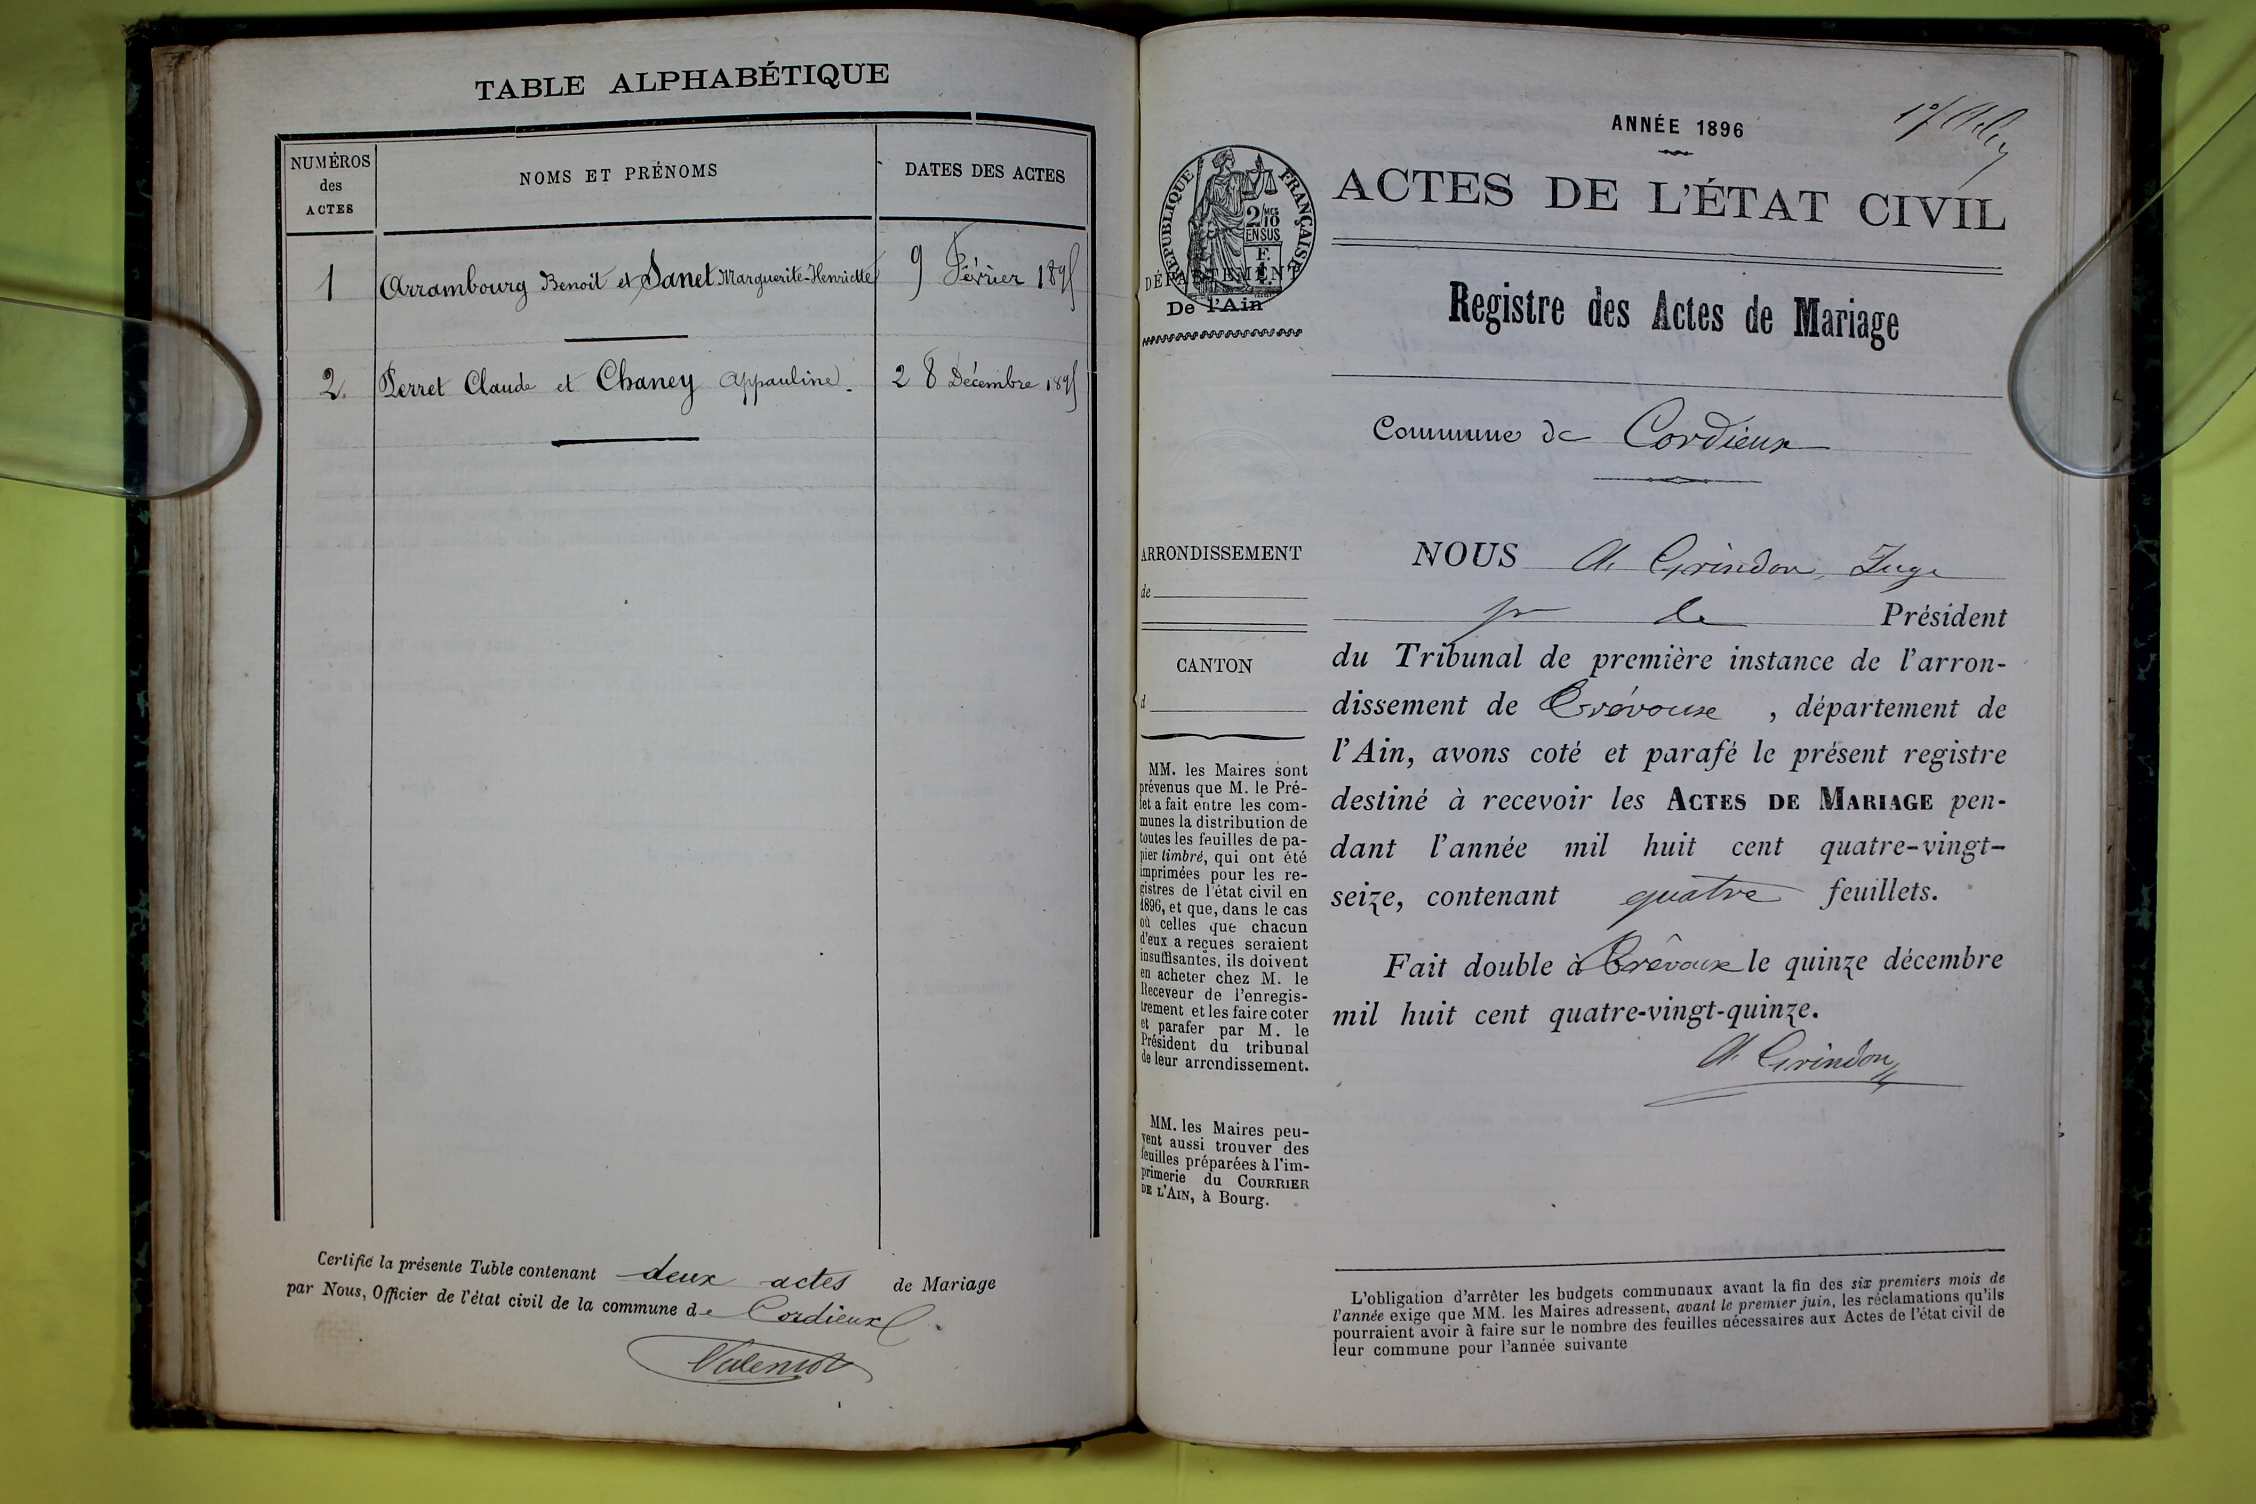 TABLE ALPHABÉTIQUE
NUMÉROS
des
ACTES
NOMS ET PRÉNOMS
DATES DES ACTES
1 Arrambourg Benoit et Janet Marguerite-Henriette 9 Février 1895
2. Perret Claude et Chaney Appauline. 28 Décembre 1895
Certifié la présente Table contenant deux actes de Mariage
par Nous, Officier de l'état civil de la commune de Cordieux
ANNÉE 1896
ACTES DE L'ÉTAT CIVIL
RÉPUBLIQUE FRANÇAISE
2/10
EN SUS
DÉPARTEMENT
De l'Ain
Registre des Actes de Mariage
Commune de Cordieux
ARRONDISSEMENT
de
CANTON
d
MM. les Maires sont
prévenus que M. le Pré-
fet a fait entre les com-
munes la distribution de
toutes les feuilles de pa-
pier timbré, qui ont été
imprimées pour les re-
gistres de l'état civil en
1896, et que, dans le cas
où celles que chacun
d'eux a reçues seraient
insuffisantes, ils doivent
en acheter chez M. le
Receveur de l'enregis-
trement et les faire coter
et parafer par M. le
Président du tribunal
de leur arrondissement.
MM. les Maires peu-
vent aussi trouver des
feuilles préparées à l'im-
primerie du COURRIER
DE L'AIN, à Bourg.
NOUS A. Grindon, Juge
pr le Président
du Tribunal de première instance de l'arron-
dissement de Trévoux, département de
l'Ain, avons coté et parafé le présent registre
destiné à recevoir les ACTES DE MARIAGE pen-
dant l'année mil huit cent quatre-vingt-
seize, contenant quatre feuillets.
Fait double à Trévoux le quinze décembre
mil huit cent quatre-vingt-quinze.
A. Grindon
L'obligation d'arrêter les budgets communaux avant la fin des six premiers mois de
l'année exige que MM. les Maires adressent, avant le premier juin, les réclamations qu'ils
pourraient avoir à faire sur le nombre des feuilles nécessaires aux Actes de l'état civil de
leur commune pour l'année suivante